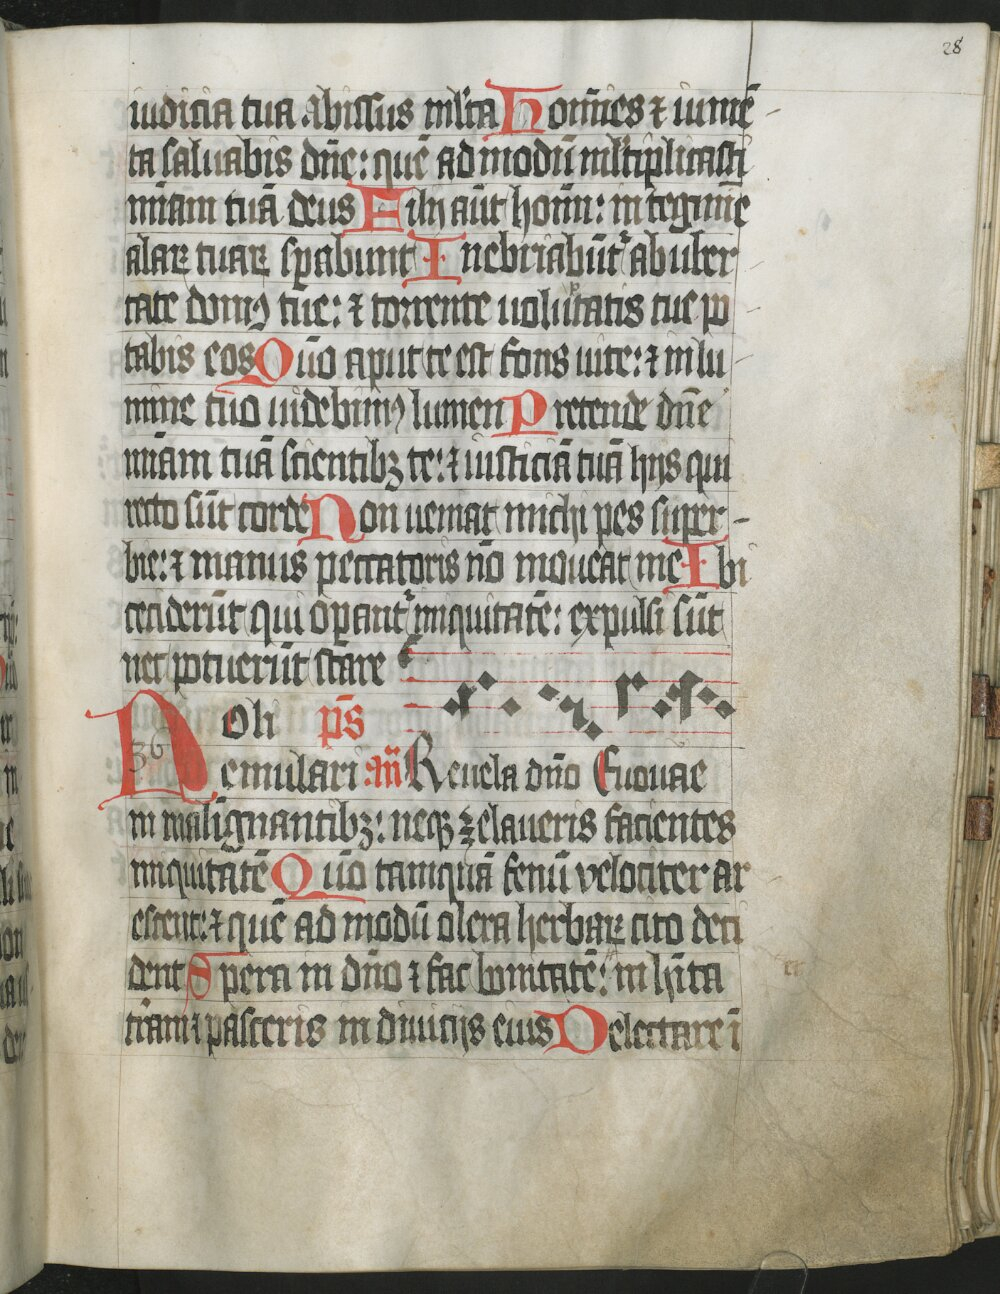 28
iudicia tua abissus ml'ta Homīes ⁊ iumē
ta saluabis dn̄e: quē ad modū ml'tiplicasti
mīam tuā deus Filij aūt hoīm: in tegmīe
alaꝝ tuaꝝ sꝑabunt Inebriabūt᷑ ab uber
tate domꝰ tue: ⁊ torrente uolūptatis tue po
tabis eos Qūo aput te est fons uite: ⁊ in lu
mine tuo uidebimꝰ lumen Pretende dn̄e
mīam tuā scientibꝫ te: ⁊ iusticiā tuā hijs qui
recto sūt corde Non ueniat michi pes super-
bie: ⁊ manus peccatoris nō moueat me Ibi
ceciderūt qui oꝑant᷑ iniquitatē: expulsi sūt
nec potuerūt stare
Noli p̄s
36
emulari añ Reuela dn̄o Euouae
in malignantibꝫ: neqꝫ zelaueris facientes
iniquitatē Qūo tamquā fenū velociter ar
escent: ⁊ quē ad modū olera herbaꝝ cito deci
dent Spera in dn̄o ⁊ fac bonitatē: in hīta
t̄ram ⁊ pasceris in diuicijs eius Delectare ī